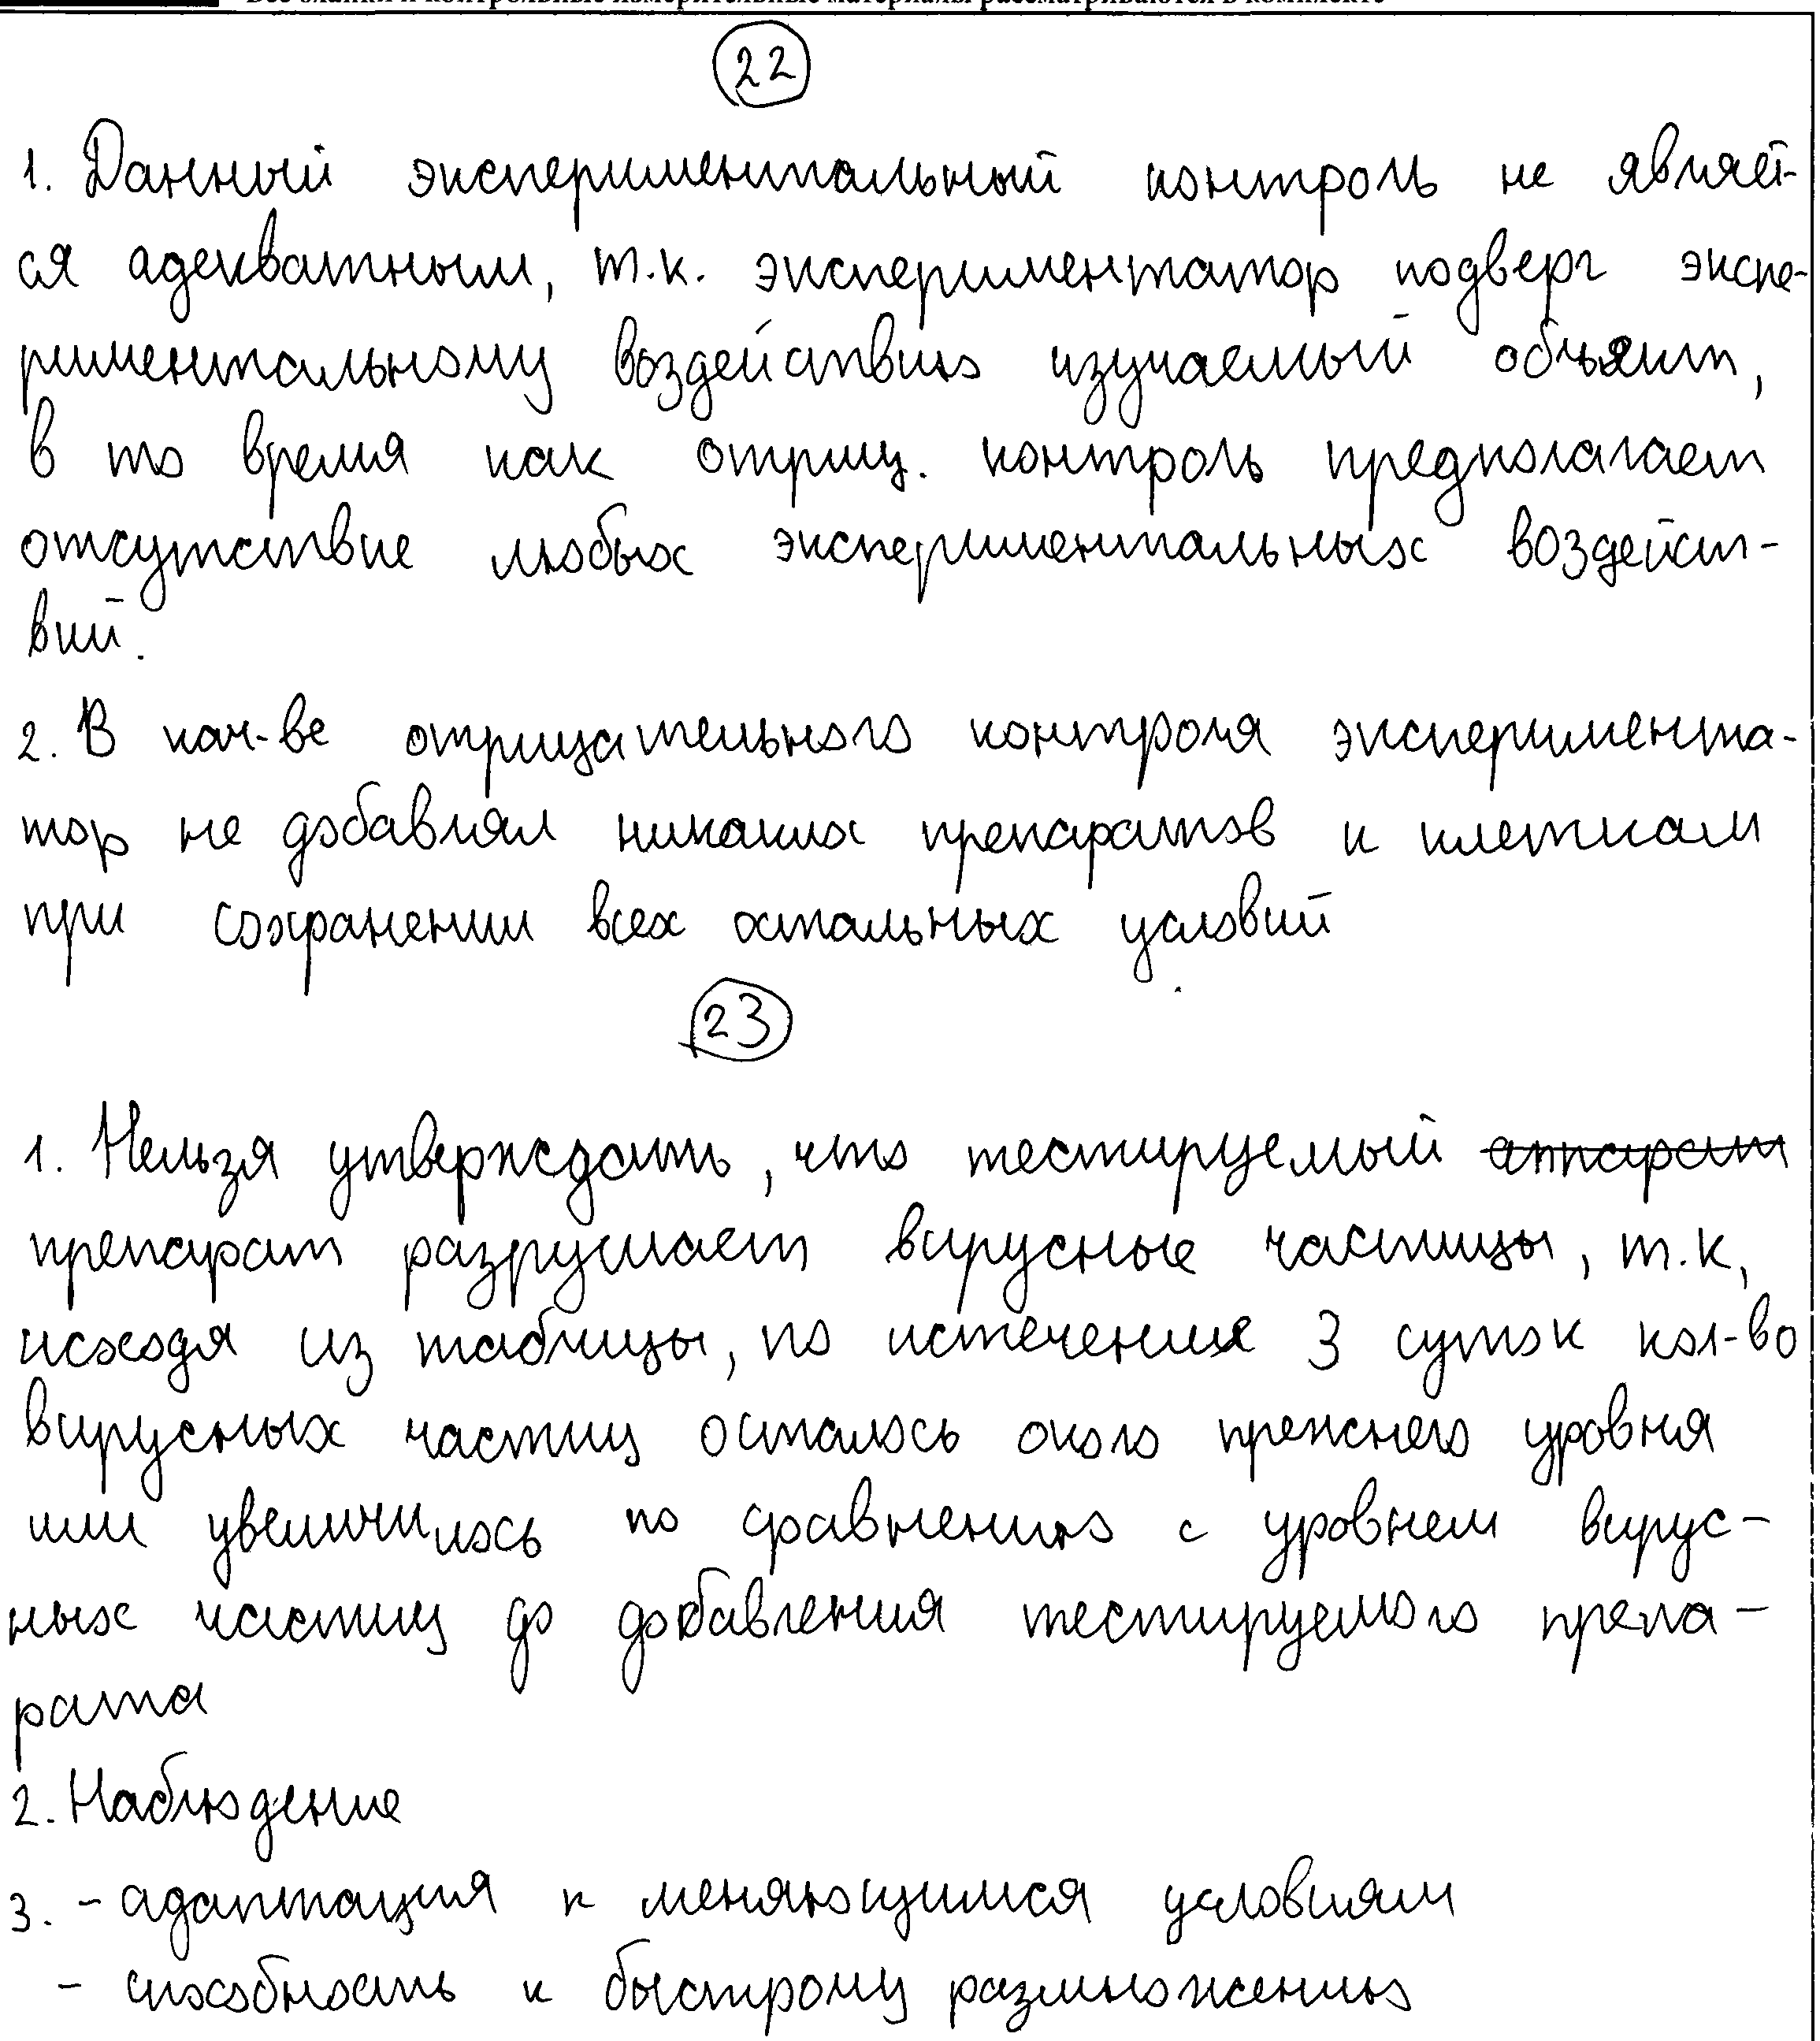 Все бланки и контрольные измерительные материалы рассматриваются в комплекте
22
1. Данный экспериментальный контроль не являет-
ся адекватным, т.к. экспериментатор подверг экспе-
риментальному воздействию изучаемый объект,
в то время как отриц. контроль предполагает
отсутствие любых экспериментальных воздейст-
вий.
2. В кач-ве отрицательного контроля эксперимента-
тор не добавлял никаких препаратов к клеткам
при сохранении всех остальных условий
23
1. Нельзя утверждать, что тестируемый аппарат
препарат разрушает вирусные частицы, т.к,
исходя из таблицы, по истечение 3 суток кол-во
вирусных частиц осталось около прежнего уровня
или увеличилось по сравнению с уровнем вирус-
ных частиц до добавления тестируемого препа-
рата
2. Наблюдение
3. - адаптация к меняющимся условиям
- способность к быстрому размножению